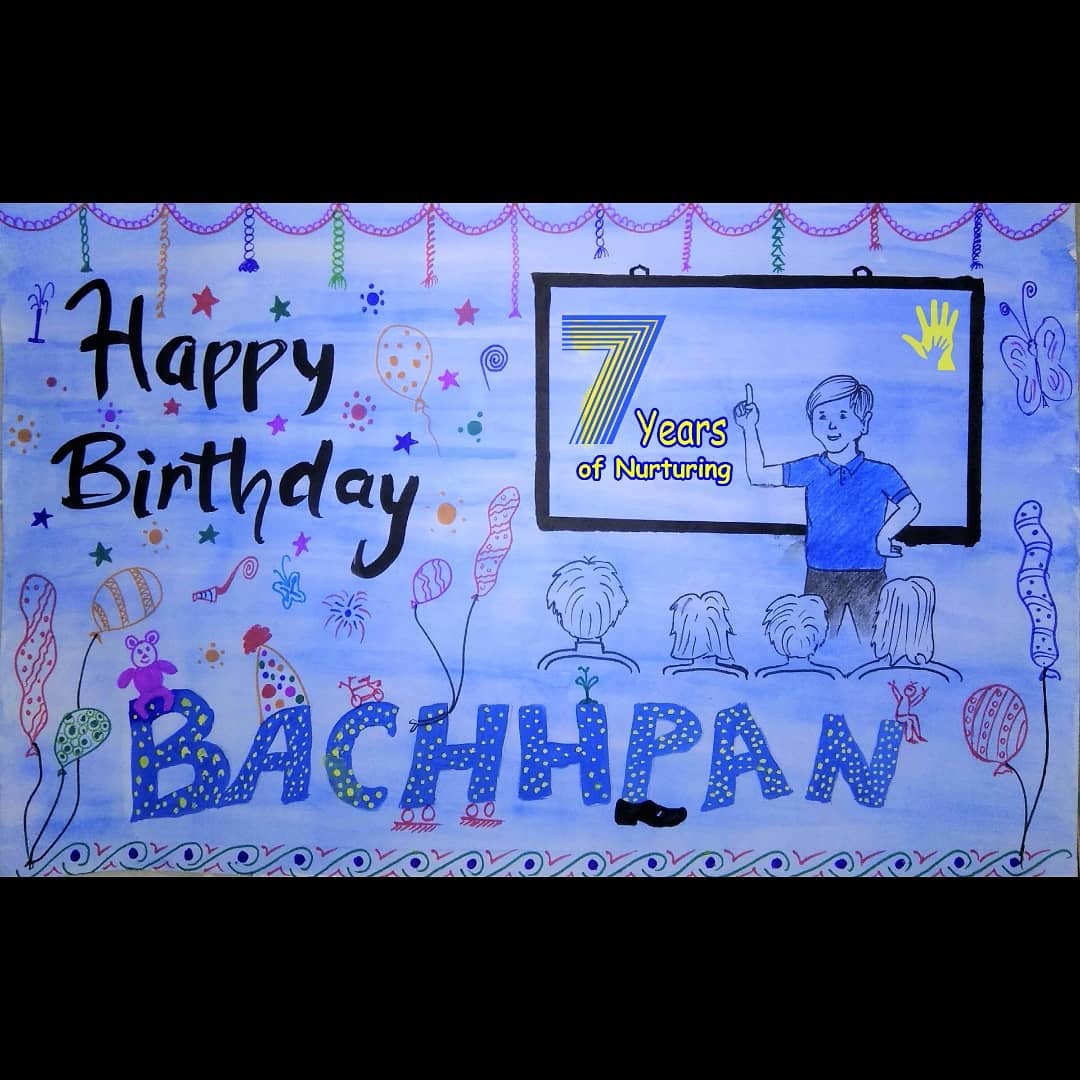 Happy
Birthday
7
Years
of Nurturing
BACHHPAN